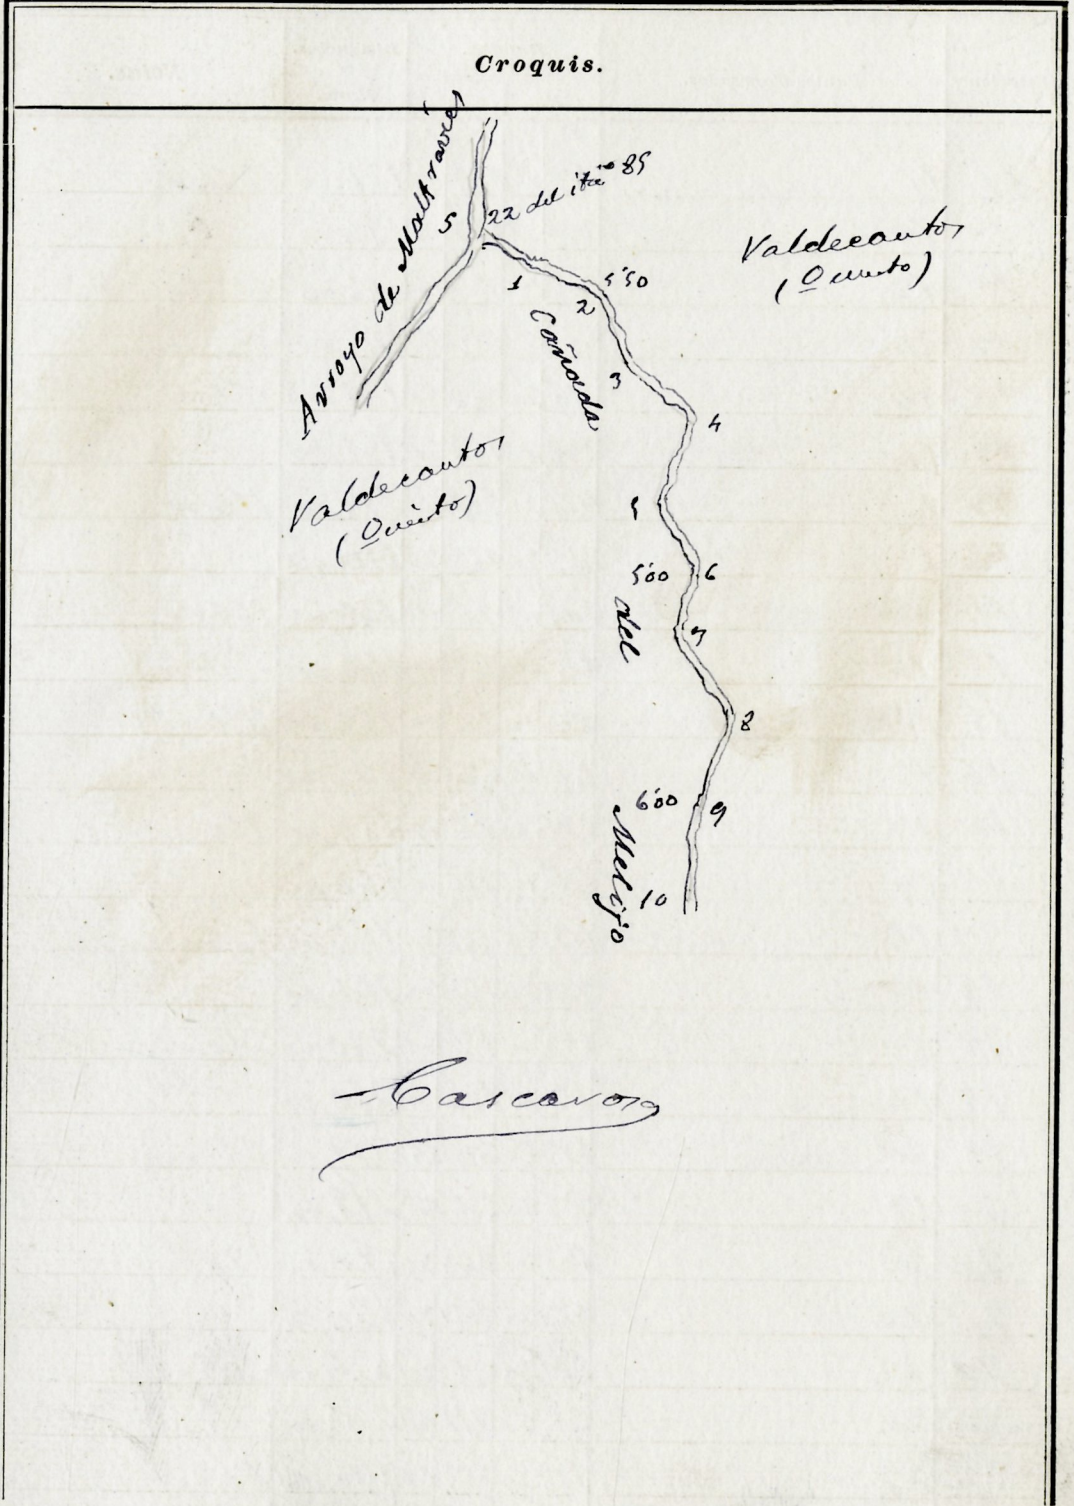 Croquis.
Arroyo de Maltravies
5
22 del itio 85
Valdecantos
(Quinto)
1
2
5'50
Cañada
3
4
Valdecantos
(Quinto)
5
5'00
6
del
7
8
6'00
9
Melijo
10